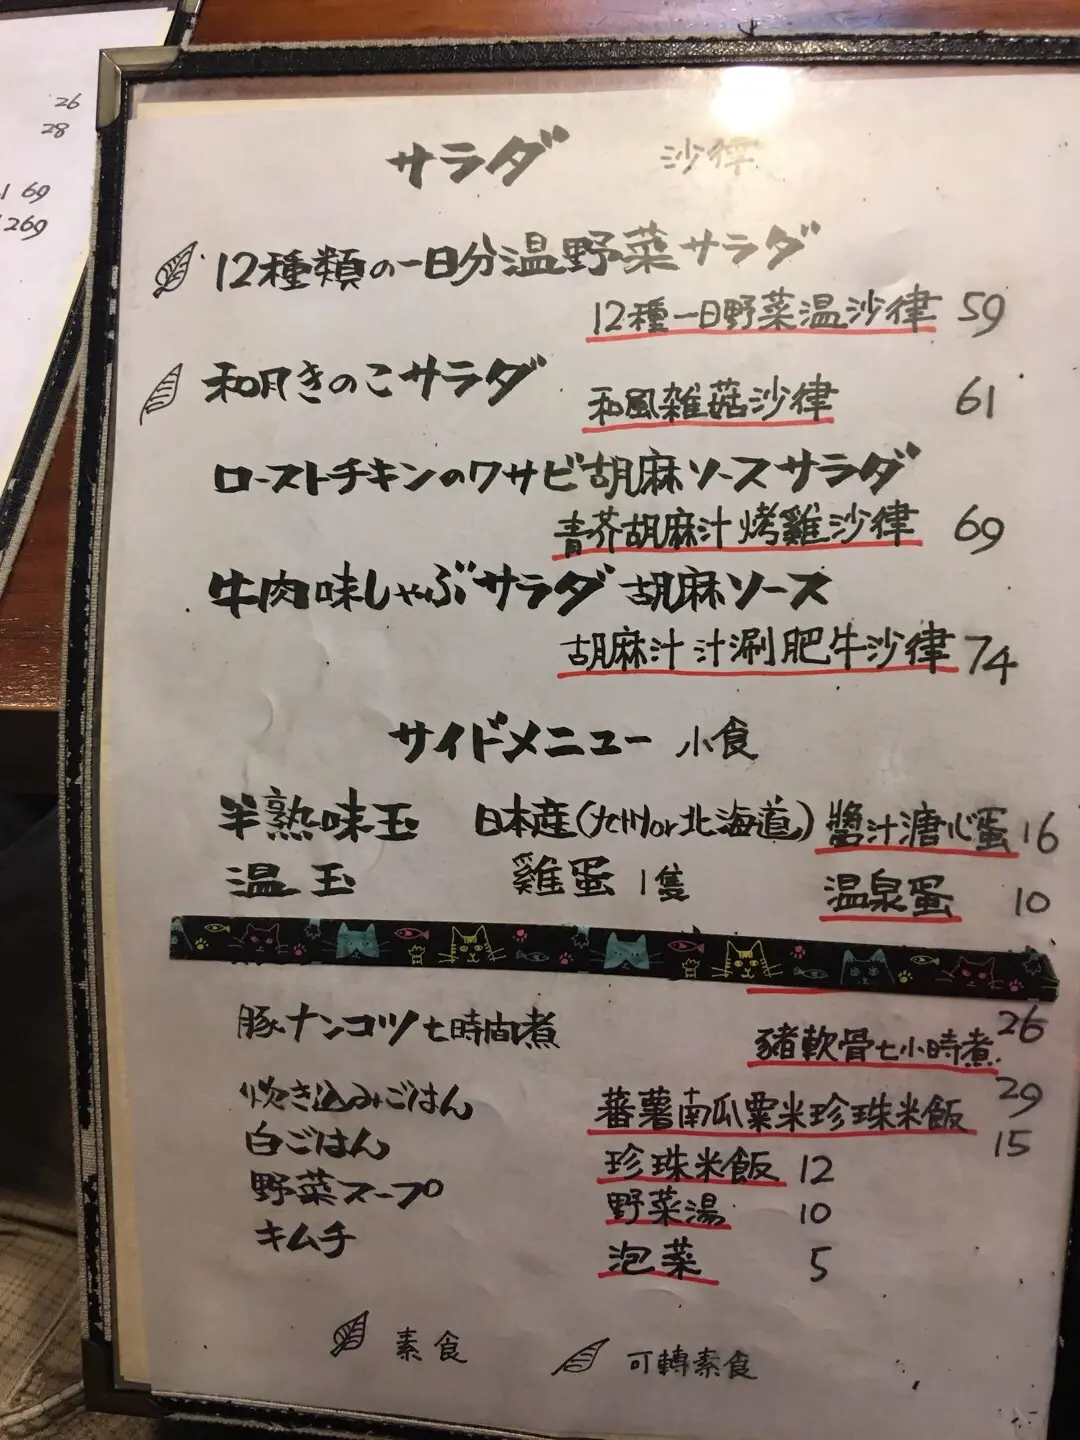 26
28
69
269
サラダ 沙律
12種類の一日分温野菜サラダ
12種一日野菜温沙律 59
和風きのこサラダ 和風雑菇沙律 61
ローストチキンのワサビ胡麻ソースサラダ
青芥胡麻汁烤雞沙律 69
牛肉味しゃぶサラダ 胡麻ソース
胡麻汁汁涮肥牛沙律 74
サイドメニュー 小食
半熟味玉 日本産(九州or北海道) 醬汁溏心蛋 16
温玉 雞蛋 1隻 温泉蛋 10
26
豚ナンコツ七時間煮 豬軟骨七小時煮
29
炊き込みごはん 蕃薯南瓜粟米珍珠米飯
15
白ごはん 珍珠米飯 12
野菜スープ 野菜湯 10
キムチ 泡菜 5
素食 可轉素食